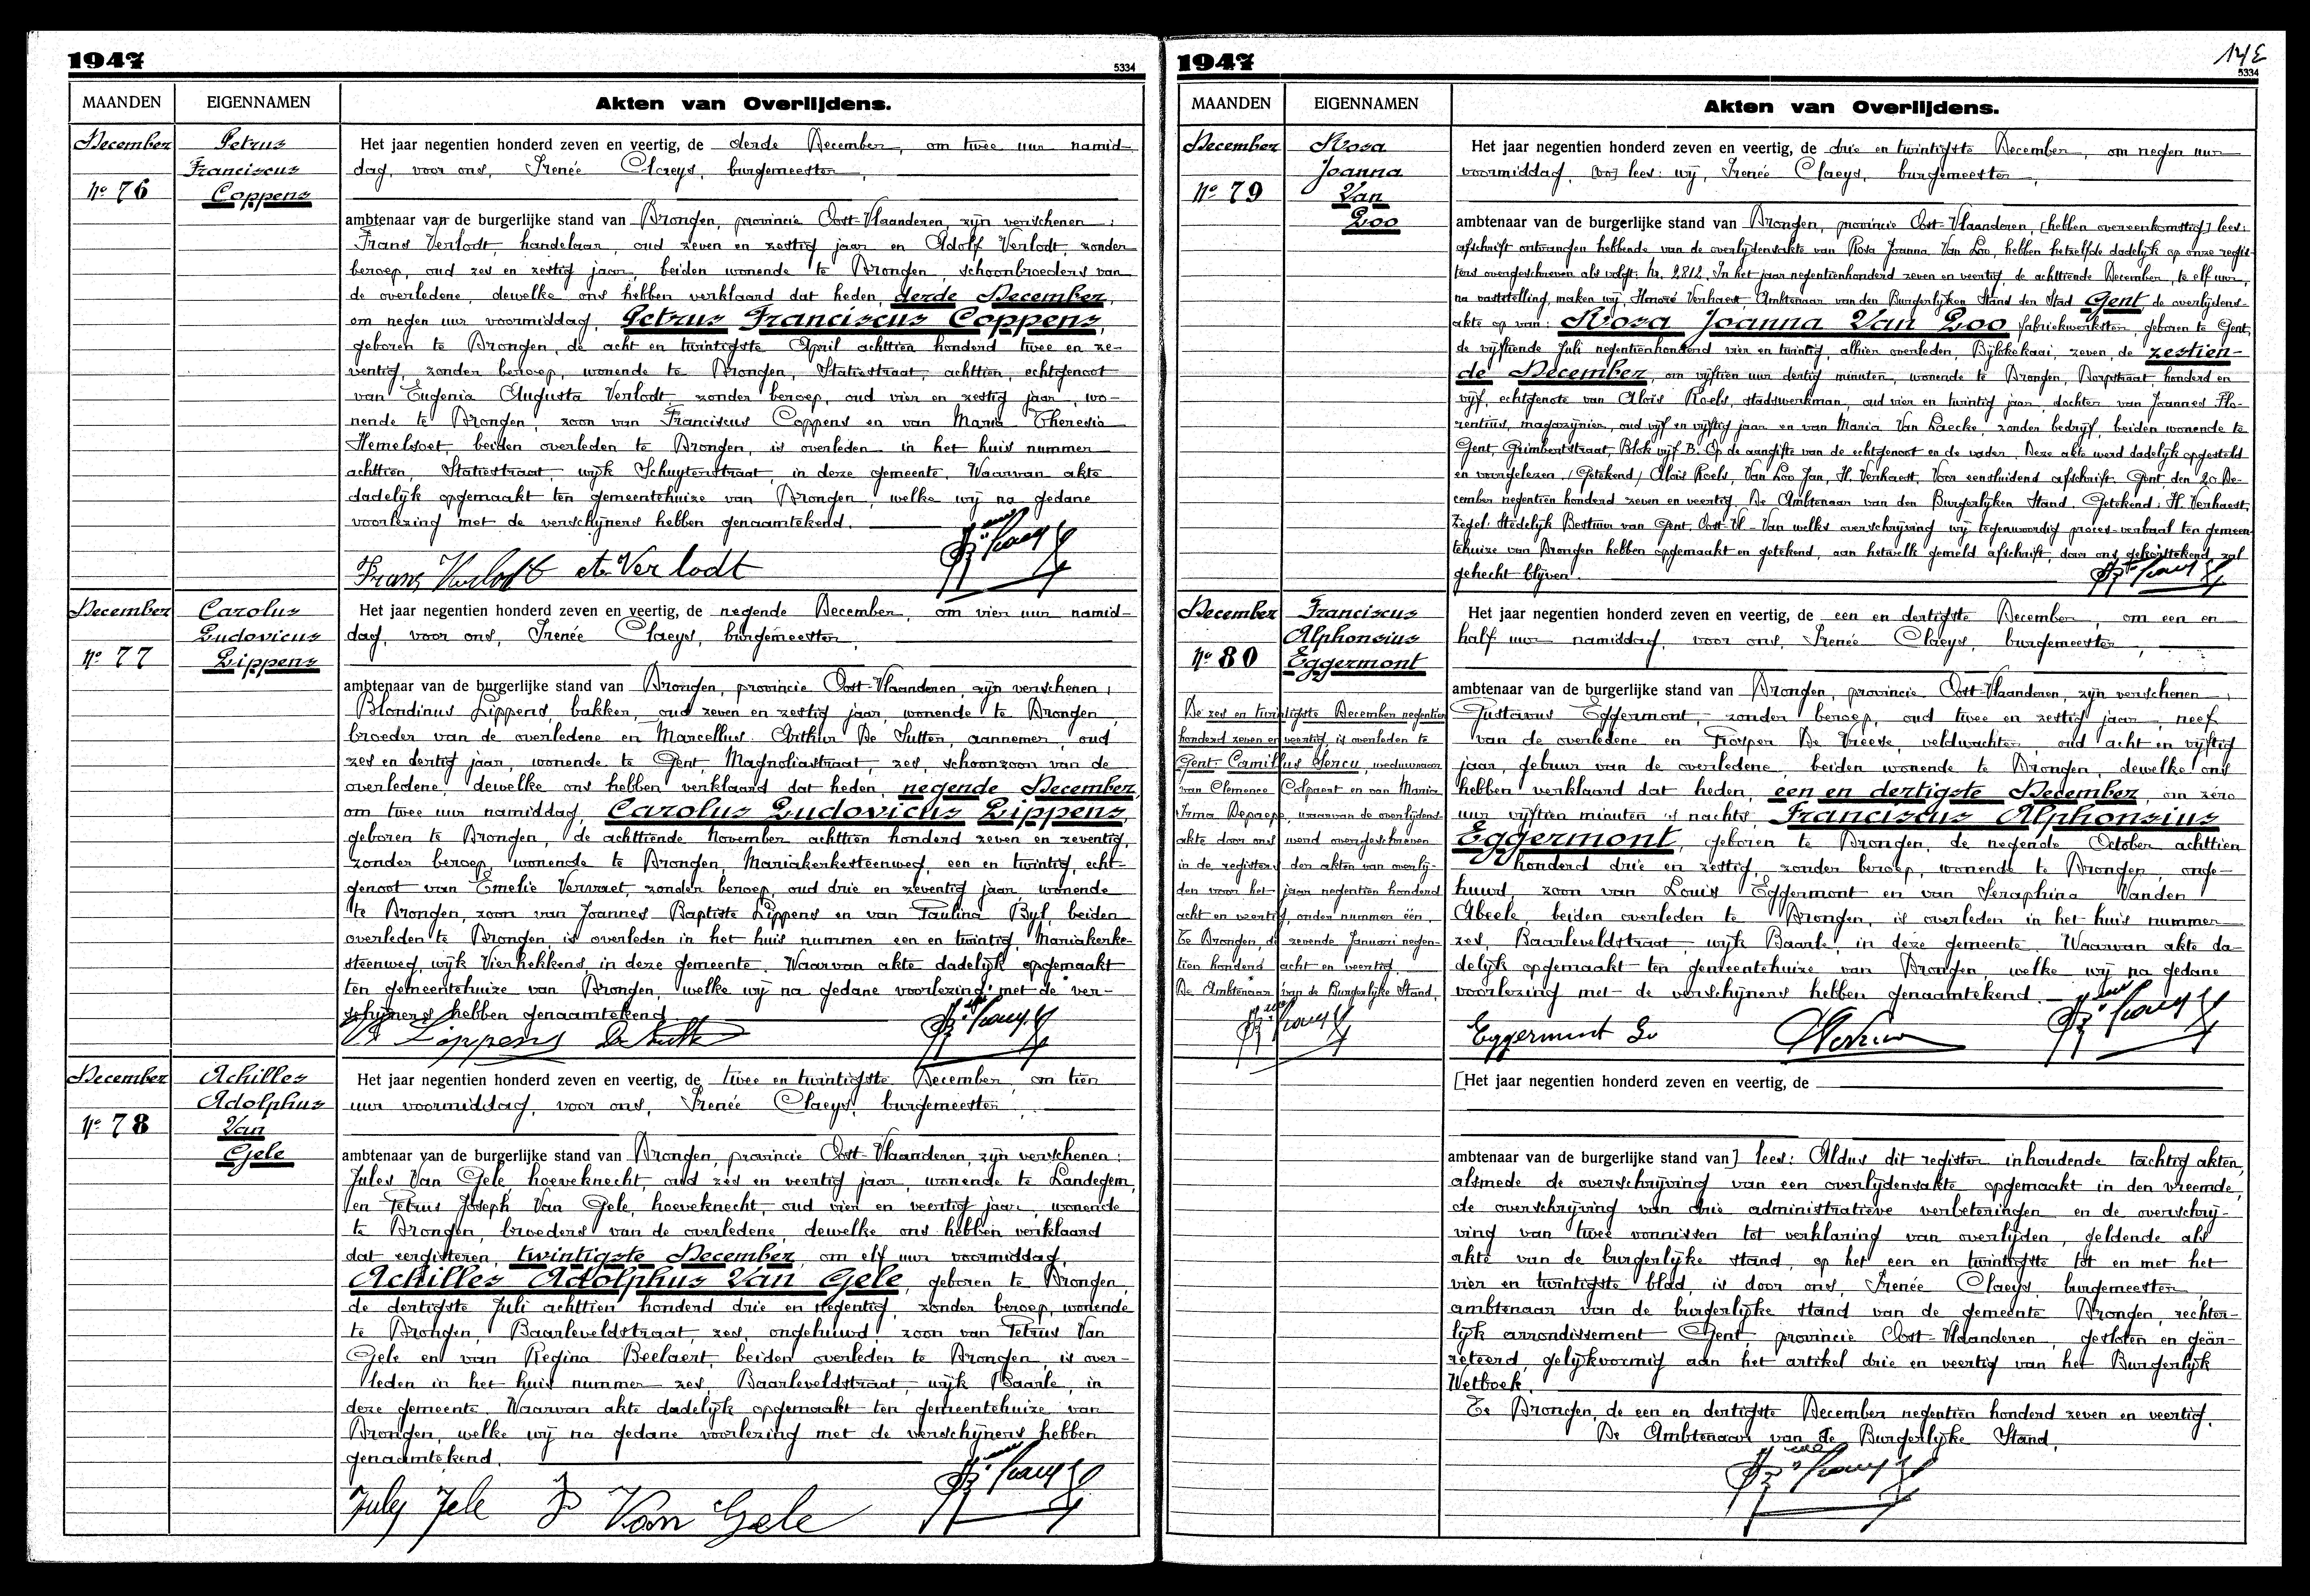 1947
5334
MAANDEN EIGENNAMEN Akten van Overlijdens.
December
Nº 76
Petrus
Franciscus
Coppens
Het jaar negentien honderd zeven en veertig, de derde December, om twee uur namid-
dag, voor ons, Irenée Claeys, burgemeester,
ambtenaar van de burgerlijke stand van Drongen, provincie Oost-Vlaanderen, zijn verschenen:
Frans Verlodt, handelaar, oud zeven en zestig jaar en Adolf Verlodt, zonder
beroep, oud zes en zestig jaar, beiden wonende te Drongen, schoonbroeders van
de overledene, dewelke ons hebben verklaard dat heden, derde December,
om negen uur voormiddag, Petrus Franciscus Coppens,
geboren te Drongen, de acht en twintigste April achttien honderd twee en ze-
ventig, zonder beroep, wonende te Drongen, Statiestraat, achttien, echtgenoot
van Eugenia Augusta Verlodt, zonder beroep, oud vier en zestig jaar, wo-
nende te Drongen, zoon van Franciscus Coppens en van Maria Theresia
Hemelsoet, beiden overleden te Drongen, is overleden in het huis nummer
achttien, Statiestraat, wijk Schuyterstraat, in deze gemeente. Waarvan akte
dadelijk opgemaakt ten gemeentehuize van Drongen, welke wij na gedane
voorlezing met de verschijners hebben genaamtekend.
Frans Verlodt A. Verlodt
December
Nº 77
Carolus
Ludovicus
Lippens
Het jaar negentien honderd zeven en veertig, de negende December, om vier uur namid-
dag, voor ons, Irenée Claeys, burgemeester,
ambtenaar van de burgerlijke stand van Drongen, provincie Oost-Vlaanderen, zijn verschenen:
Blondinus Lippens, bakker, oud zeven en zestig jaar, wonende te Drongen,
broeder van de overledene en Marcellus Arthur De Sutter, aannemer, oud
zes en dertig jaar, wonende te Gent, Magnoliastraat, zes, schoonzoon van de
overledene, dewelke ons hebben verklaard dat heden, negende December,
om twee uur namiddag, Carolus Ludovicus Lippens,
geboren te Drongen, de achttiende November achttien honderd zeven en zeventig,
zonder beroep, wonende te Drongen, Mariakerksteenweg, een en twintig, echt-
genoot van Emelie Vervaet, zonder beroep, oud drie en zeventig jaar, wonende
te Drongen, zoon van Joannes Baptiste Lippens en van Paulina Byl, beiden
overleden te Drongen, is overleden in het huis nummer een en twintig, Mariakerke-
steenweg, wijk Vierhekkens, in deze gemeente. Waarvan akte dadelijk opgemaakt
ten gemeentehuize van Drongen, welke wij na gedane voorlezing met de ver-
schijners hebben genaamtekend.
Lippens De Sutter
December
Nº 78
Achilles
Adolphus
Van
Gele
Het jaar negentien honderd zeven en veertig, de twee en twintigste December, om tien
uur voormiddag, voor ons, Irenée Claeys, burgemeester,
ambtenaar van de burgerlijke stand van Drongen, provincie Oost-Vlaanderen, zijn verschenen:
Jules Van Gele, hoeveknecht, oud zes en veertig jaar, wonende te Landegem,
en Petrus Joseph Van Gele, hoeveknecht, oud vier en veertig jaar, wonende
te Drongen, broeders van de overledene, dewelke ons hebben verklaard
dat eergisteren, twintigste December, om elf uur voormiddag,
Achilles Adolphus Van Gele, geboren te Drongen,
de dertigste Juli achttien honderd drie en negentig, zonder beroep, wonende
te Drongen, Baarleveldstraat, zes, ongehuwd, zoon van Petrus Van
Gele en van Regina Beelaert, beiden overleden te Drongen, is over-
leden in het huis nummer zes, Baarleveldstraat, wijk Baarle, in
deze gemeente. Waarvan akte dadelijk opgemaakt ten gemeentehuize van
Drongen, welke wij na gedane voorlezing met de verschijners hebben
genaamtekend.
July Jele Van Gele
1947
5334
MAANDEN EIGENNAMEN Akten van Overlijdens.
December
Nº 79
Rosa
Joanna
Van
Loo
Het jaar negentien honderd zeven en veertig, de drie en twintigste December, om negen uur
voormiddag, [vo] lees: wij, Irenée Claeys, burgemeester,
ambtenaar van de burgerlijke stand van Drongen, provincie Oost-Vlaanderen, [hebben overeenkomstig] lees:
afschrift ontvangen hebbende van de overlijdensakte van Rosa Joanna Van Loo, hebben hetzelfde dadelijk op onze regis-
ters overgeschreven als volgt: Nr. 2812. In het jaar negentienhonderd zeven en veertig, de achttiende December, te elf uur,
na vaststelling, maken wij Honoré Verhaest Ambtenaar van den Burgerlijken Stand der Stad Gent de overlijdens-
akte op van: Rosa Joanna Van Loo fabriekwerkster, geboren te Gent,
de vijftiende Juli negentienhonderd vier en twintig, alhier overleden, Bijlokekaai, zeven, de zestien-
de December, om vijftien uur dertig minuten, wonende te Drongen, Dorpstraat, honderd en
vijf, echtgenote van Aloïs Roels, stadswerkman, oud vier en twintig jaar, dochter van Joannes Flo-
rentius, magazijnier, oud vijf en vijftig jaar en van Maria Van Laecke, zonder bedrijf, beiden wonende te
Gent, Grimbertstraat, Blok vijf B. Op de aangifte van de echtgenoot en de vader. Deze akte werd dadelijk opgesteld
en voorgelezen. (Getekend) Aloïs Roels, Van Loo Jan, H. Verhaest. Voor eensluidend afschrift. Gent, den 20 De-
cember negentien honderd zeven en veertig. De Ambtenaar van den Burgerlijken Stand. Getekend: H. Verhaest.
Zegel: Stedelijk Bestuur van Gent, Oost-Vl. Van welks overschrijving wij tegenwoordig proces-verbaal ten gemeen-
tehuize van Drongen hebben opgemaakt en getekend, aan hetwelk gemeld afschrift, door ons gekorttekend, zal
gehecht blijven.
December
Nº 80
Franciscus
Alphonsius
Eggermont
De zes en twintigste December negentien
honderd zeven en veertig is overleden te
Gent Camillus Sercu, weduwnaar
van Clemence Colpaert en van Maria
Irma Depaepe, waarvan de overlijdens-
akte door ons werd overgeschreven
in de registers der akten van overlij-
den voor het jaar negentien honderd
acht en veertig, onder nummer één.
Te Drongen, de zevende Januari negen-
tien honderd acht en veertig.
De Ambtenaar van de Burgerlijke Stand,
Het jaar negentien honderd zeven en veertig, de een en dertigste December, om een en
half uur namiddag, voor ons, Irenée Claeys, burgemeester,
ambtenaar van de burgerlijke stand van Drongen, provincie Oost-Vlaanderen, zijn verschenen:
Gustavus Eggermont, zonder beroep, oud twee en zestig jaar, neef
van de overledene en Prosper De Vreese, veldwachter, oud acht en vijftig
jaar, gebuur van de overledene, beiden wonende te Drongen, dewelke ons
hebben verklaard dat heden, een en dertigste December, om zéro
uur vijftien minuten 's nachts, Franciscus Alphonsius
Eggermont, geboren te Drongen, de negende October achttien
honderd drie en zestig, zonder beroep, wonende te Drongen, onge-
huwd, zoon van Louis Eggermont en van Seraphina Vanden
Abeele, beiden overleden te Drongen, is overleden in het huis nummer
zes, Baarleveldstraat, wijk Baarle, in deze gemeente. Waarvan akte da-
delijk opgemaakt ten gemeentehuize van Drongen, welke wij na gedane
voorlezing met de verschijners hebben genaamtekend.
Eggermont Gu
[Het jaar negentien honderd zeven en veertig, de
ambtenaar van de burgerlijke stand van] lees: Aldus dit register inhoudende tachtig akten,
alsmede de overschrijving van een overlijdensakte opgemaakt in den vreemde,
de overschrijving van drie administratieve verbeteringen en de overschrij-
ving van twee vonnissen tot verklaring van overlijden, geldende als
akte van de burgerlijke stand, op het een en twintigste tot en met het
vier en twintigste blad, is door ons, Irenée Claeys, burgemeester,
ambtenaar van de burgerlijke stand van de gemeente Drongen, rechter-
lijk arrondissement Gent, provincie Oost-Vlaanderen, gesloten en geär-
reteerd, gelijkvormig aan het artikel drie en veertig van het Burgerlijk
Wetboek.
Te Drongen, de een en dertigste December negentien honderd zeven en veertig.
De Ambtenaar van de Burgerlijke Stand,